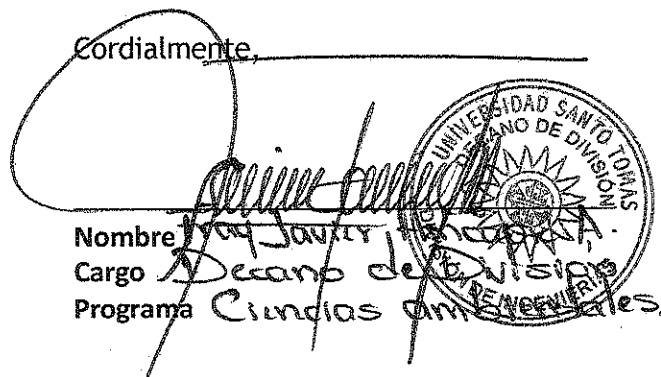 Cordialmente,
UNIVERSIDAD SANTO TOMAS
DECANO DE DIVISIÓN
DIVISIÓN DE INGENIERÍAS
Nombre Fray Javier
Cargo Decano de División
Programa Ciencias ambientales.